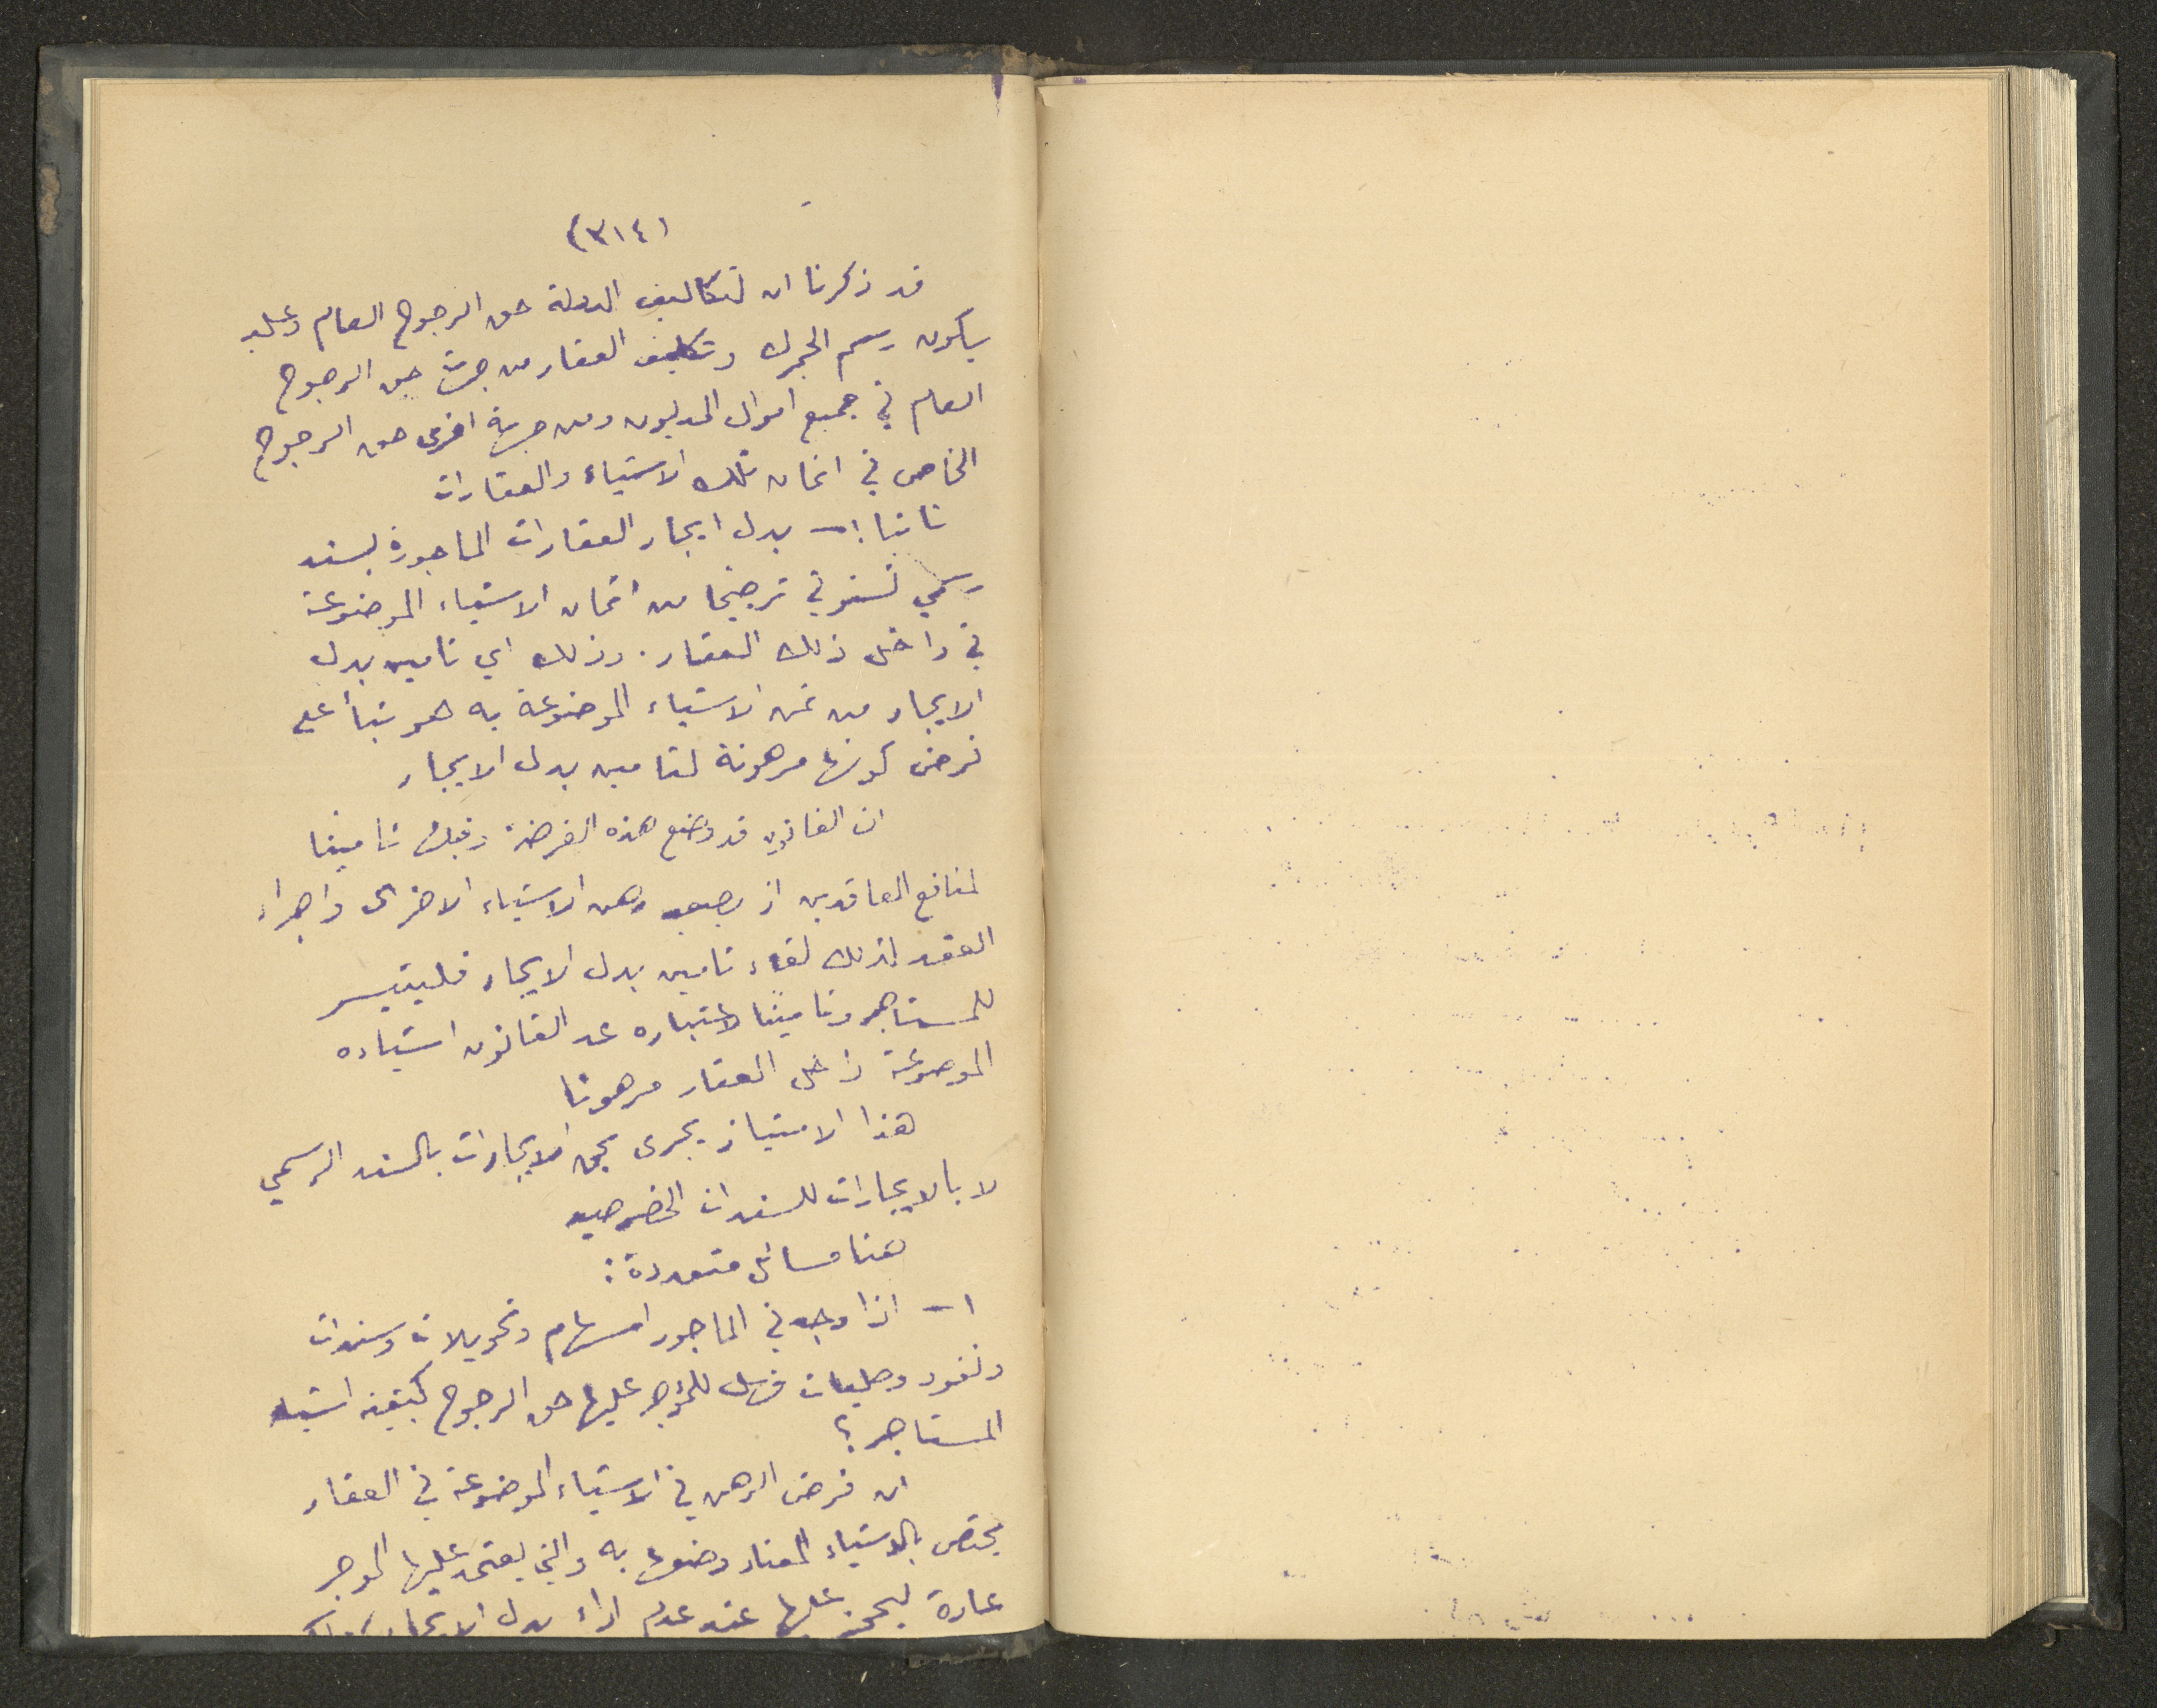 (٣١٤)
قد ذكرنا ان لتكاليف الدولة حق الرجوح العام وعليه
يكون رسم الجمرك وتكليف العقار من جهة حق الرجوح
العام في جميع اموال المديون ومن جهة اخرى حق الرجوح
الخاص في اثمان تلك الاشياء والعقارات
ثانيا ١ـ بدل ايجار العقارات الماجورة بسند
رسمي تستوفي ترجيحا من اثمان الاشياء الموضوعة
في داخل ذلك العقار. وذلك اي تامين بدل
الايجار من ثمن الاشياء الموضوعة به هو بناً على
فرض كونها مرهونة لتامين بدل الايجار
ان القانون قد وضع هذه الفرضية تامينا
لمنافع العاقدين اذ يصعب رهن الاشياء الاخرى واجراء
العقد لذلك لقاء تامين بدل الايجار فليتيسر
للمستاجر وتامينًا لاعتباره عد القانون اشياءه
الموضوعة داخل العقار مرهونا
هذا الامتياز يجرى بحق الايجارات بالسند الرسمي
لا بالايجارات للسندات الخصوصيه
هنا مسائل متعددة :
١ـ اذا وجد في الماجور اسهام وتحويلات وسندات
ونقود وحليات فهل للمؤجر عليها حق الرجوح كبقية اشياء
المستاجر ؟
ان فرض الرهن في الاشياء الموضوعة في العقار
يختص بالاشياء المعتاد وضعها به والتي يعتمد عليها الموجر
عادة ليحجز عليها عند عدم اداء بدل الايجار